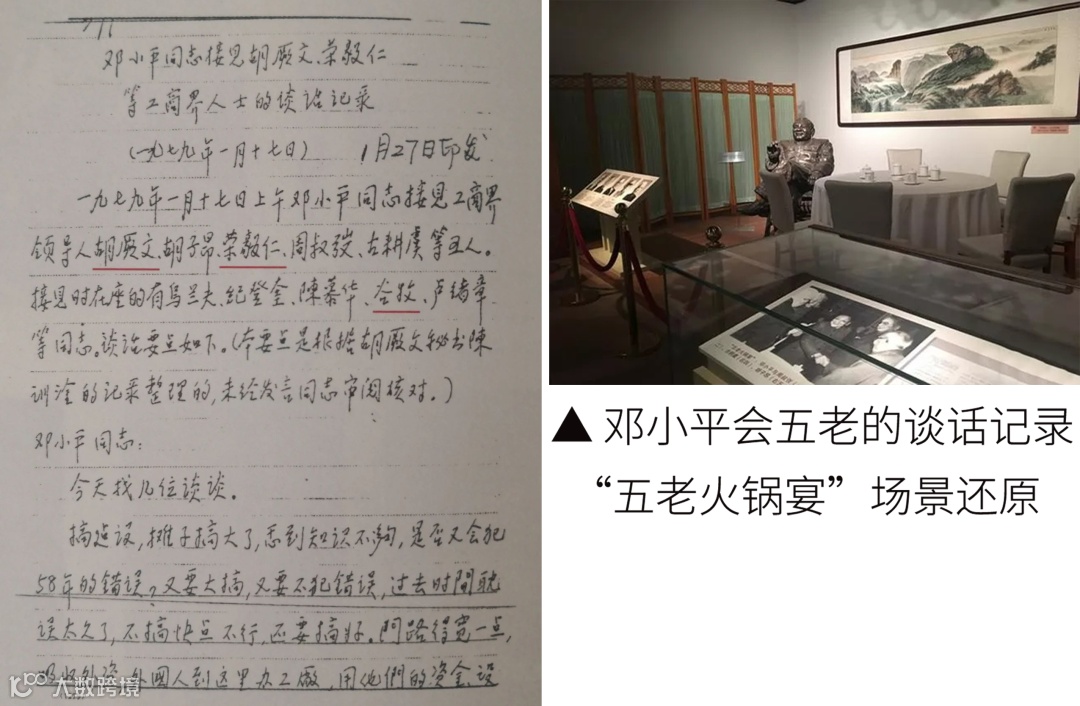 邓小平同志接见胡厥文、荣毅仁
等工商界人士的谈话记录
(一九七九年一月十七日) 1月27日印发
一九七九年一月十七日上午邓小平同志接见工商界
领导人胡厥文、胡子昂、荣毅仁、周叔弢、古耕虞等五人。
接见时在座的有乌兰夫、纪登奎、陳慕华、谷牧、卢绪章
等同志。谈话要点如下。(本要点是根据胡厥文秘书陳
训淦的记录整理的,未经发言同志审阅核对。)
邓小平同志:
今天找几位谈谈。
搞建设,摊子搞大了,感到知识不夠,是否又会犯
58年的错误?又要大搞,又要不犯错误,过去时間耽
误太久了,不搞快点不行,还要搞好。門路得宽一点,
吸收外资,外國人到这里办工廠,用他們的资金、设
大数跨境
▲ 邓小平会五老的谈话记录
“五老火锅宴”场景还原